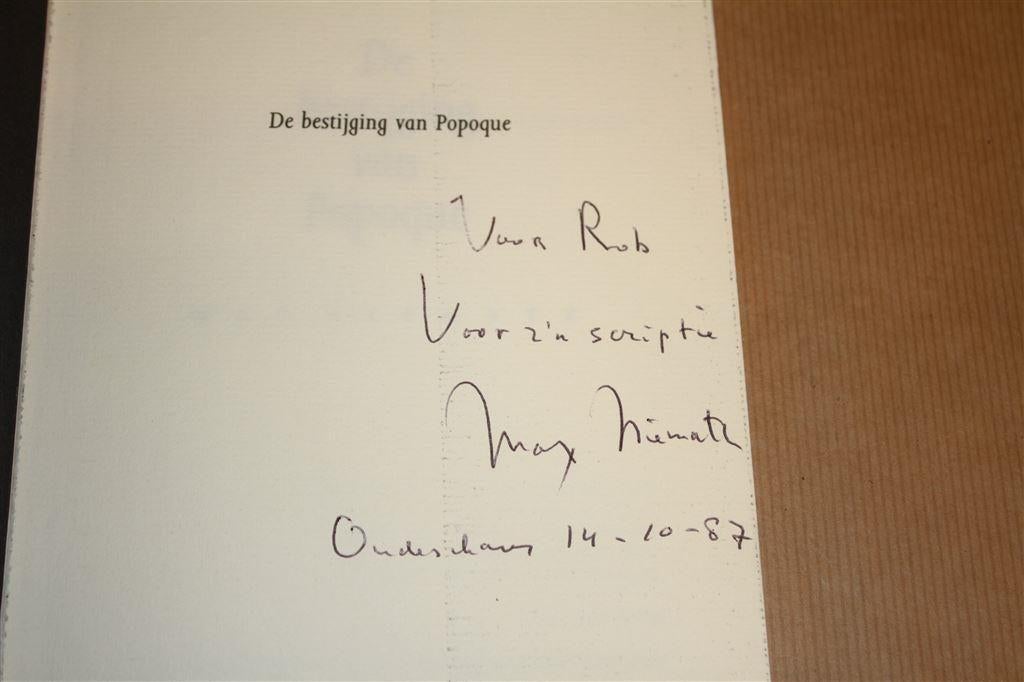 De bestijging van Popoque
Voor Rob
Voor z'n scriptie
Max Niematz
Oudeschans 14-10-87